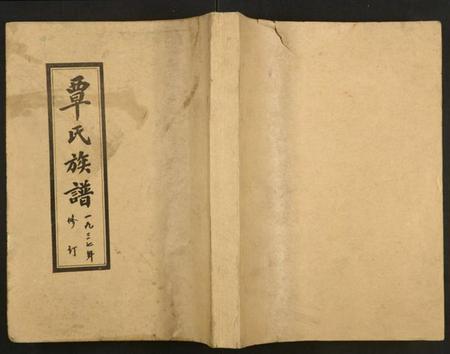 覃氏族譜
一九三七年
修訂